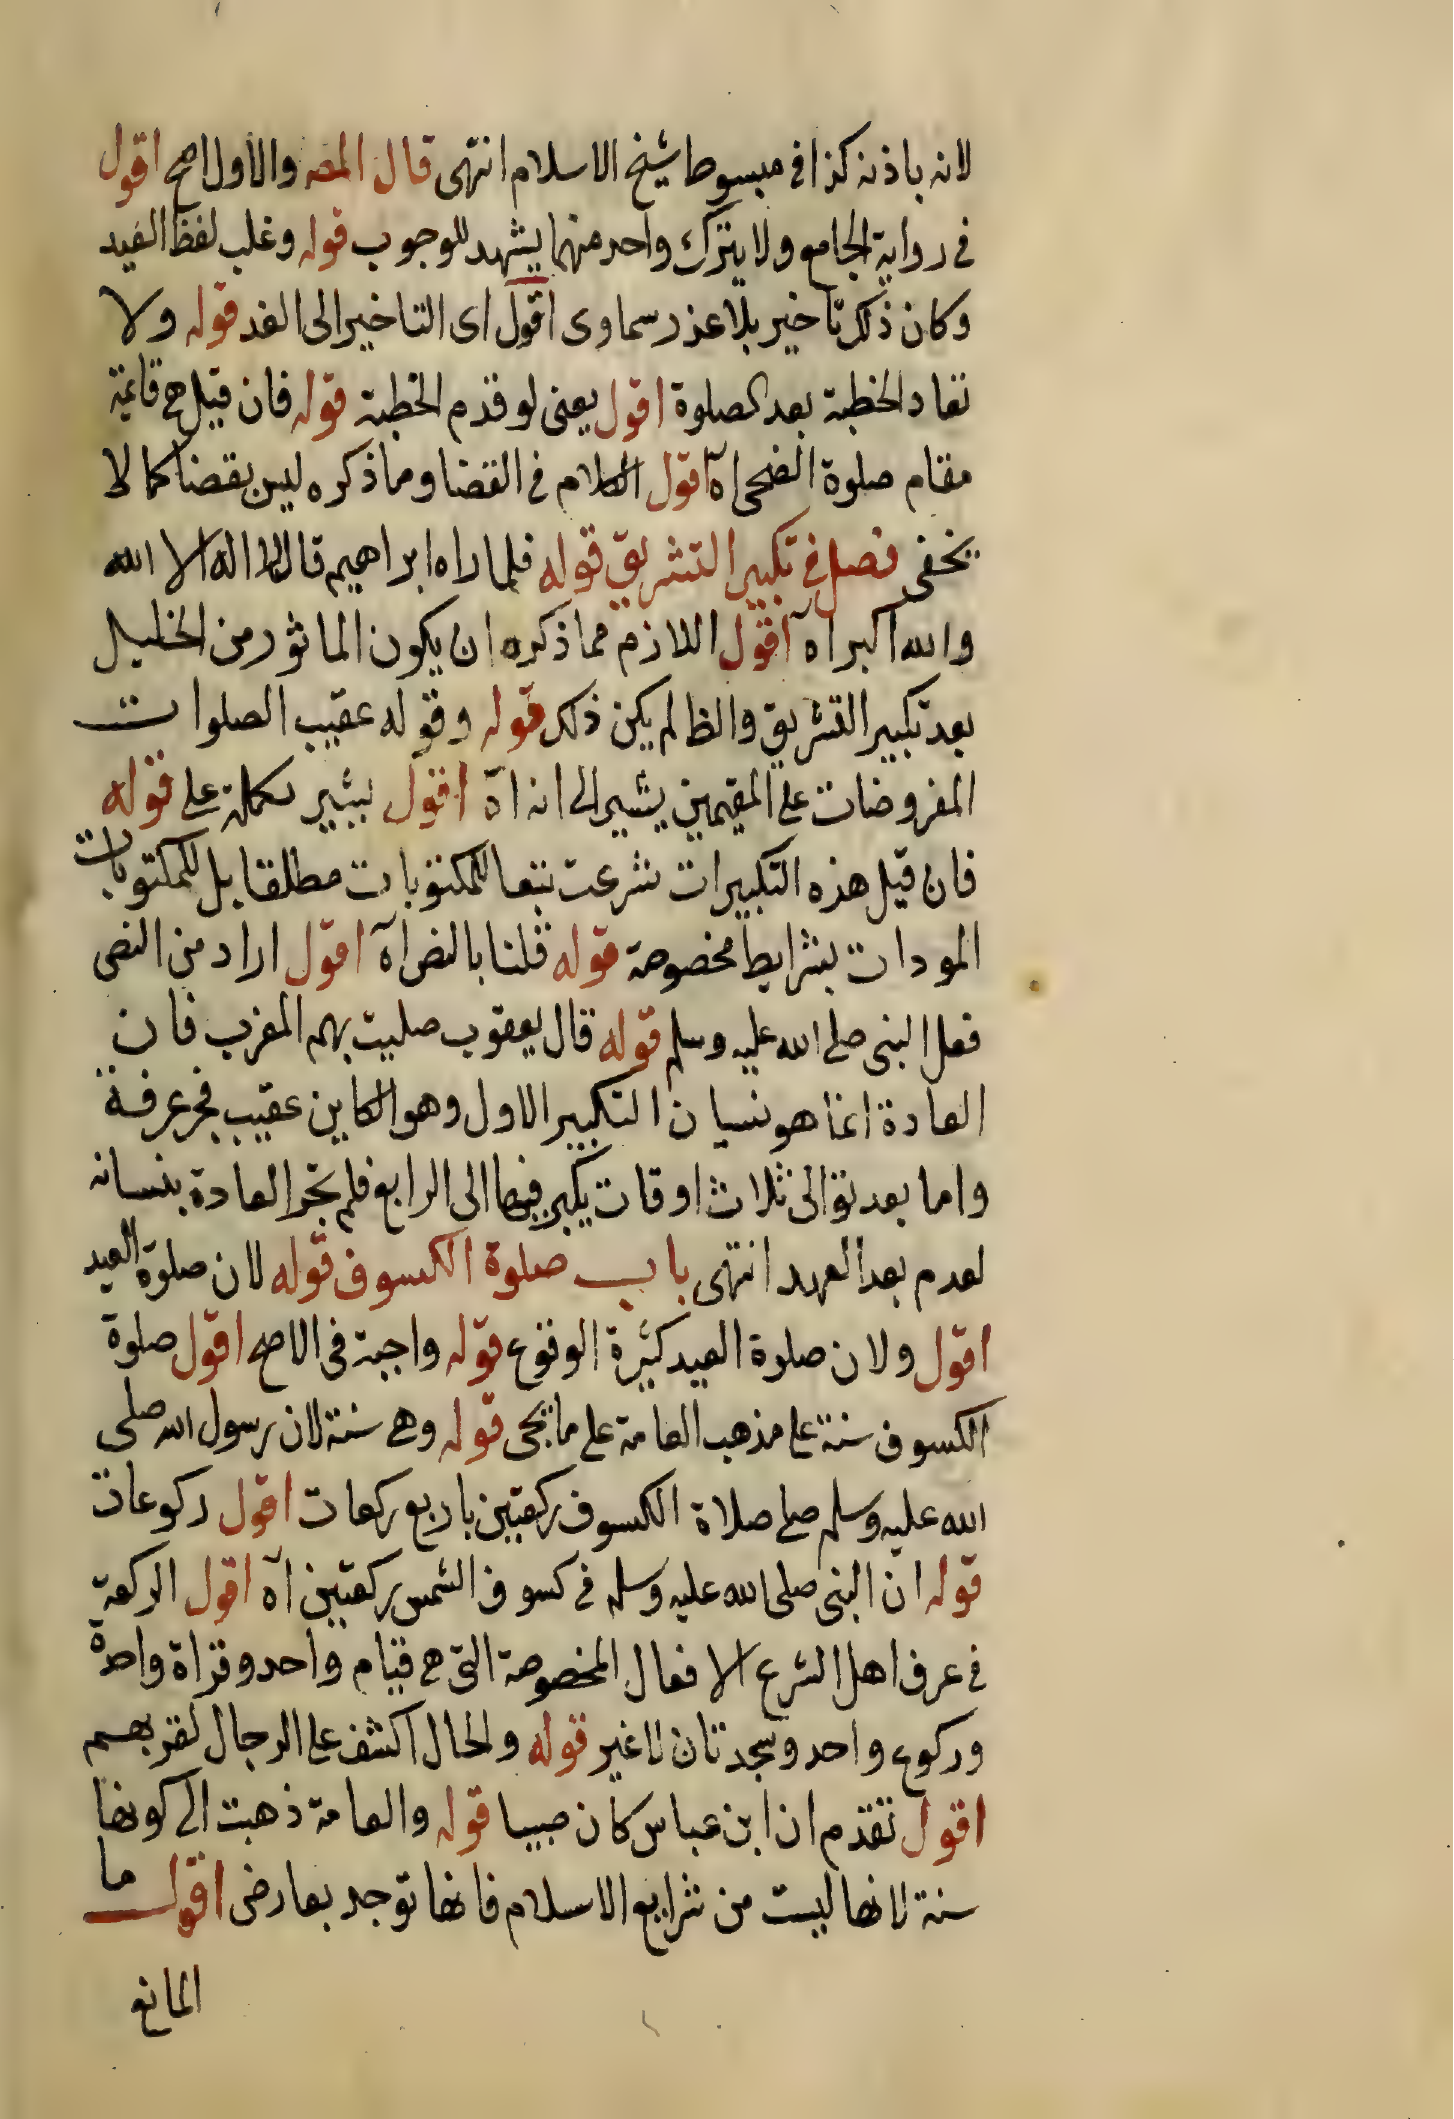 لانه باذنه كذا فى مبسوط شيخ الاسلام انتهى قال المصه والاول اصح اقول
فى رواية الجامع ولا يترك واحد منهما يشهد للوجوب قوله وغلب لفظ العيد
وكان ذلك تاخير بلا عذر سماوى اقول اى التاخير الى الغد قوله ولا
تعاد الخطبة بعد الصلوة اقول يعنى لو قدم الخطبة قوله فان قيل هى قائمة
مقام صلوة الضحى اه اقول الكلام فى القضا وما ذكره ليس بقضا كما لا
يخفى فصل فى تكبير التشريق قوله فلما راه ابراهيم قال لا اله الا الله
والله اكبر اه اقول اللازم مما ذكره ان يكون الماثور من الخليل
بعد تكبير التشريق والظ لم يكن ذلك قوله وقوله عقيب الصلوات
المفروضات على المقيمين يشير الى انه اه اقول يشير بكلمة على قوله
فان قيل هذه التكبيرات شرعت تبعا للمكتوبات مطلقا بل للمكتوبات
المودات بشرايط مخصوصة قوله قلنا بالنص اه اقول اراد من النص
فعل النبى صلى الله عليه وسلم قوله قال يعقوب صليت بهم المغرب فان
العادة انما هو نسيان التكبير الاول وهو الكاين عقيب فجر عرفة
واما بعد توالى ثلاث اوقات يكبر فيها الى الرابع فلم تجر العادة بنسيانه
لعدم بعد العهد انتهى باب صلوة الكسوف قوله لان صلوة العيد
اقول ولان صلوة العيد كثيرة الوقوع قوله واجبة فى الاصح اقول صلوة
الكسوف سنة على مذهب العامة على ما يجى قوله وهى سنة لان رسول الله صلى
الله عليه وسلم صلى صلاة الكسوف ركعتين باربع ركعات اقول ركوعات
قوله ان النبى صلى الله عليه وسلم فى كسوف الشمس ركعتين اه اقول الركعة
فى عرف اهل الشرع الافعال المخصوصة التى هى قيام واحد وقراة واحدة
وركوع واحد وسجدتان لا غير قوله والحال اكشف على الرجال لقربهم
اقول تقدم ان ابن عباس كان صبيا قوله والعامة ذهبت الى كونها
سنة لانها ليست من شرايع الاسلام فانها توجد بعارض اقول ما
المانع